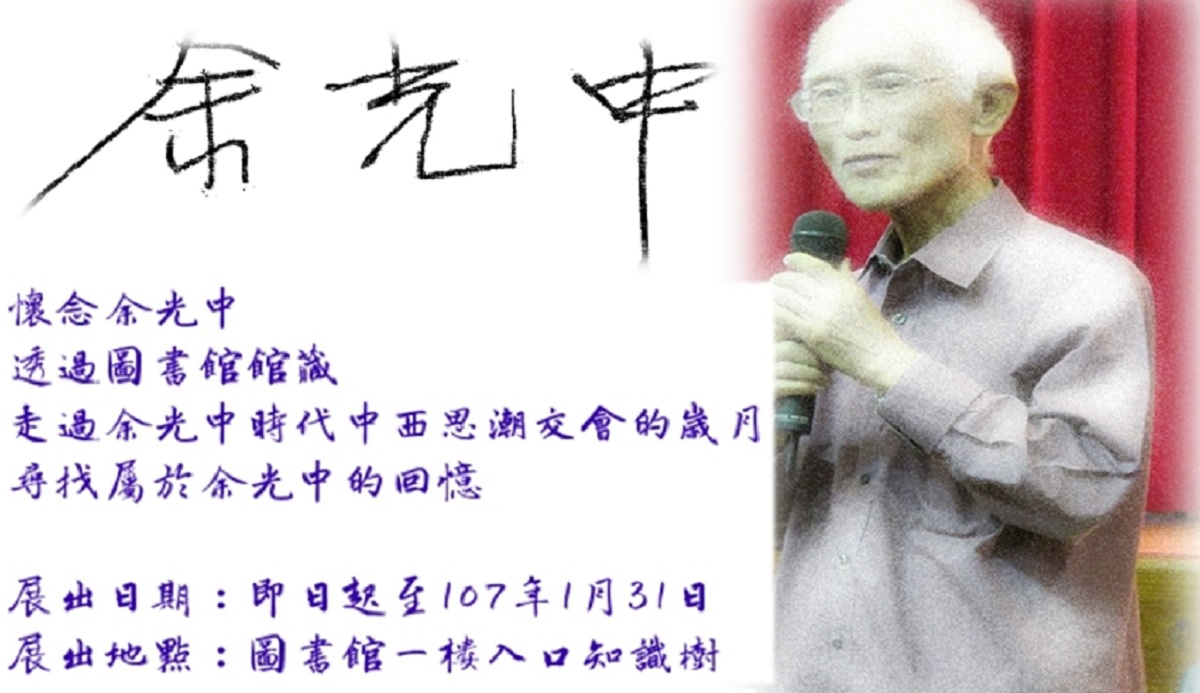 余光中
懷念余光中
透過圖書館館藏
走過余光中時代中西思潮交會的歲月
尋找屬於余光中的回憶
展出日期：即日起至107年1月31日
展出地點：圖書館一樓入口知識樹